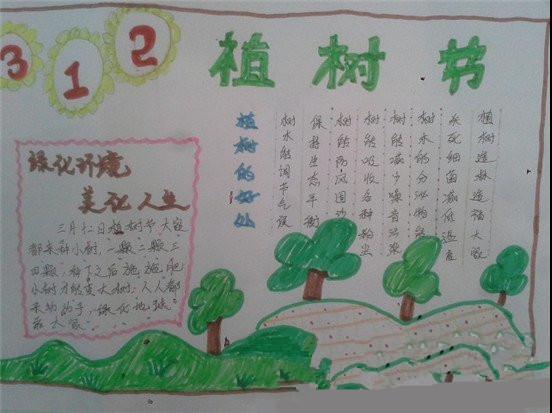 312
植树节
绿化环境
美化人生
三月十二日植树节大家
都来种小树,一颗二颗三
四颗,种下之后施施肥
小树才能变大树,人人都
来动动手,绿化地球
靠大家
植树的好处
树木能调节气候
保持生态平衡
树能防风固沙
树能吸收各种粉尘
树能减少噪音污染
树木的分泌物能
杀死细菌减低温度
植树造林造福大家